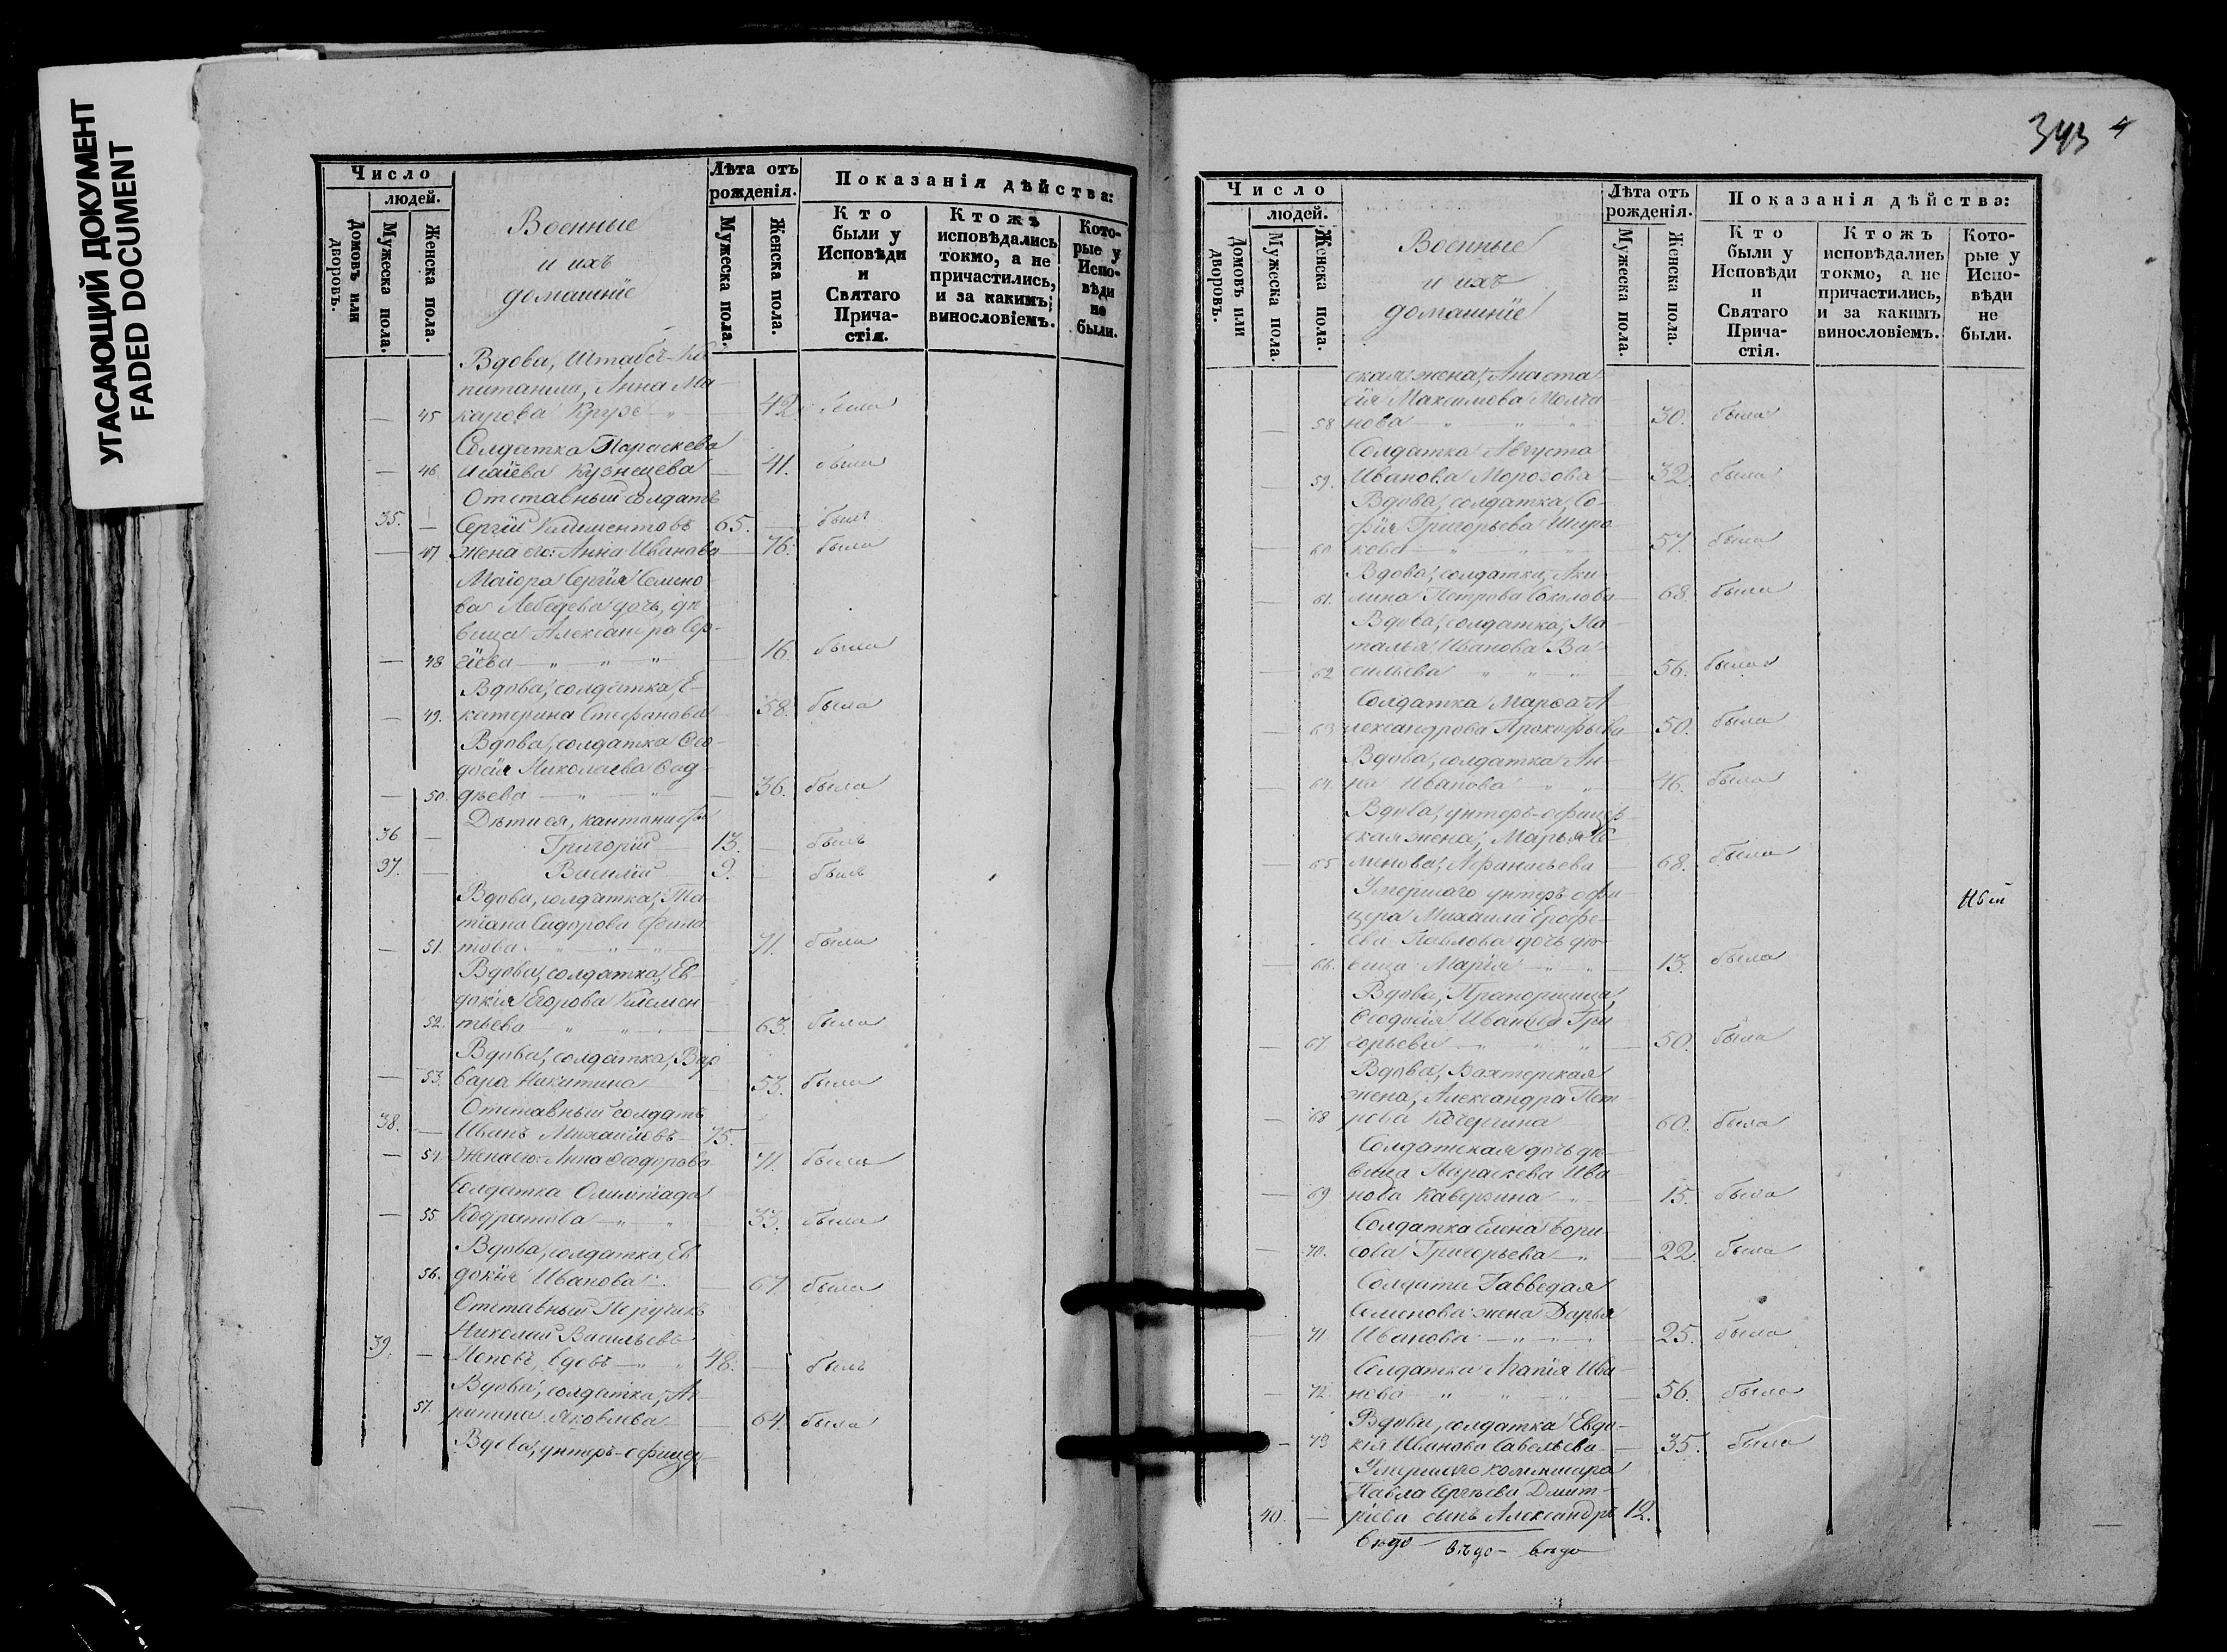 УГАСАЮЩИЙ ДОКУМЕНТ
FADED DOCUMENT
Число
людей.
Домовъ или дворовъ.
Мужеска пола.
Женска пола.
Военные
и ихъ
домашніе
Лѣта отъ
рожденія.
Мужеска пола.
Женска пола.
Показанія дѣйства:
Кто
были у
Исповѣди
и
Святаго
Прича-
стія.
Ктожъ
исповѣдались
токмо, а не
причастились,
и за какимъ
винословіемъ.
Кото-
рые у
Испо-
вѣди
не
были.
Вдова, Штабсъ-Ка-
питанша, Анна Ма-
— 45 карова Крузе — 42 была
Солдатка Параскева
— 46 Исаіева Кузнецова — 41. была
Отставный солдатъ
35. — Сергій Климентовъ 65. — былъ
— 47 жена его: Анна Иванова — 76. была
Маіора Сергія Семено-
ва Лебедева дочь, дѣ-
вица Александра Сер-
— 48 гіева — " — " — " — 16 была
Вдова, солдатка, Е-
— 49. катерина Стефанова — 58. была
Вдова, солдатка Ѳео-
досія Николаева Ѳад-
— 50. дѣева — " — " — 36. была
Дѣти ея, кантонисты
36 — Григорій — 13. — былъ
37. — Василій — 9. — былъ
Вдова, солдатка, Та-
тіана Сидорова Фила-
— 51. това — " — " — 71. была
Вдова, солдатка, Ев-
докія Егорова Клемен-
52. тьева — " — " — 63. была
Вдова, солдатка, Вар-
— 53. вара Никитина — 53. была
Отставный солдатъ
38. — Иванъ Михаиловъ — 75. —
— 54. жена его: Анна Ѳеодорова 71. была
Солдатка Олимпіада
— 55. Кодратова — " — " — 33. была
Вдова, солдатка, Ев-
56. докія Иванова — 67 была
Отставный Поручикъ
Николай Васильевъ
39. — Поповъ, вдовъ — " — " 48. — былъ
Вдова, солдатка, Аг-
57. рипина Яковлева — 64. была
Вдова, унтеръ-офицер-
343 4
Число
людей.
Домовъ или дворовъ.
Мужеска пола.
Женска пола.
Военные
и ихъ
домашніе
Лѣта отъ
рожденія.
Мужеска пола.
Женска пола.
Показанія дѣйства:
Кто
были у
Исповѣди
и
Святаго
Прича-
стія.
Ктожъ
исповѣдались
токмо, а не
причастились,
и за какимъ
винословіемъ.
Кото-
рые у
Испо-
вѣди
не
были.
ская жена, Анаста-
сія Максимова Молча-
— 58 нова — " — " — " — 30. была
Солдатка Августа
— 59. Иванова Морозова — 32. была
Вдова, солдатка, Со-
фія Григорьева Широ-
— 60 кова — " — " — " — 57. была
Вдова, солдатка, Аки-
— 61. лина Петрова Соколова — 68. была
Вдова, солдатка, На-
талья Иванова Ва-
— 62 сильева — " — " — " — 56. была
Солдатка Марѳа А-
— 63 лександрова Прокофьева — 50. была
Вдова, солдатка Ан-
— 64. на Иванова — " — " — 46. была
Вдова, унтеръ-офицер-
ская жена, Марья Се-
— 65 менова, Афанасьева — 68. была
Умершаго унтеръ-офи-
цера Михаила Ерофе-
ева Павлова дочь дѣ-
— 66. вица Марія — " — " — 13. была
Вдова, Прапорщица,
Ѳеодосія Иванова Гри-
— 67 горьева — " — " — " — 50. была
Вдова, Вахтерская
жена, Александра Пет-
— 68 рова Кочергина — 60. была
Солдатская дочь дѣ-
вица Параскева Ива-
— 69 нова Каверзина — " — 15. была
Солдатка Елена Бори-
— 70. сова Григорьева — " — 22. была
Солдата
Семенова жена Дарья
— 71 Иванова — " — " — 25. была
Солдатка Агапія Ива-
— 72. нова — " — " — " — 56. была
Вдова, солдатка Евдо-
— 73 кія Иванова Савельева — 35. была
Умершаго
Павла Сергѣева Дмит-
40. — ріева сынъ Александръ 12.